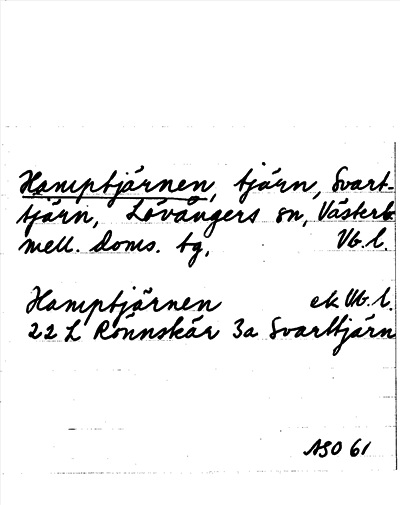 Hamptjärnen, tjärn, Svart-
tjärn, Lövångers sn, Västerb.
mell. doms. tg, Vb. l.
Hamptjärnen ek Vb. l.
22 L Rönnskär 3a Svarttjärn
ASO 61